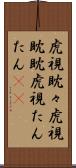 虎視眈々虎視
眈眈虎視たん
たん((